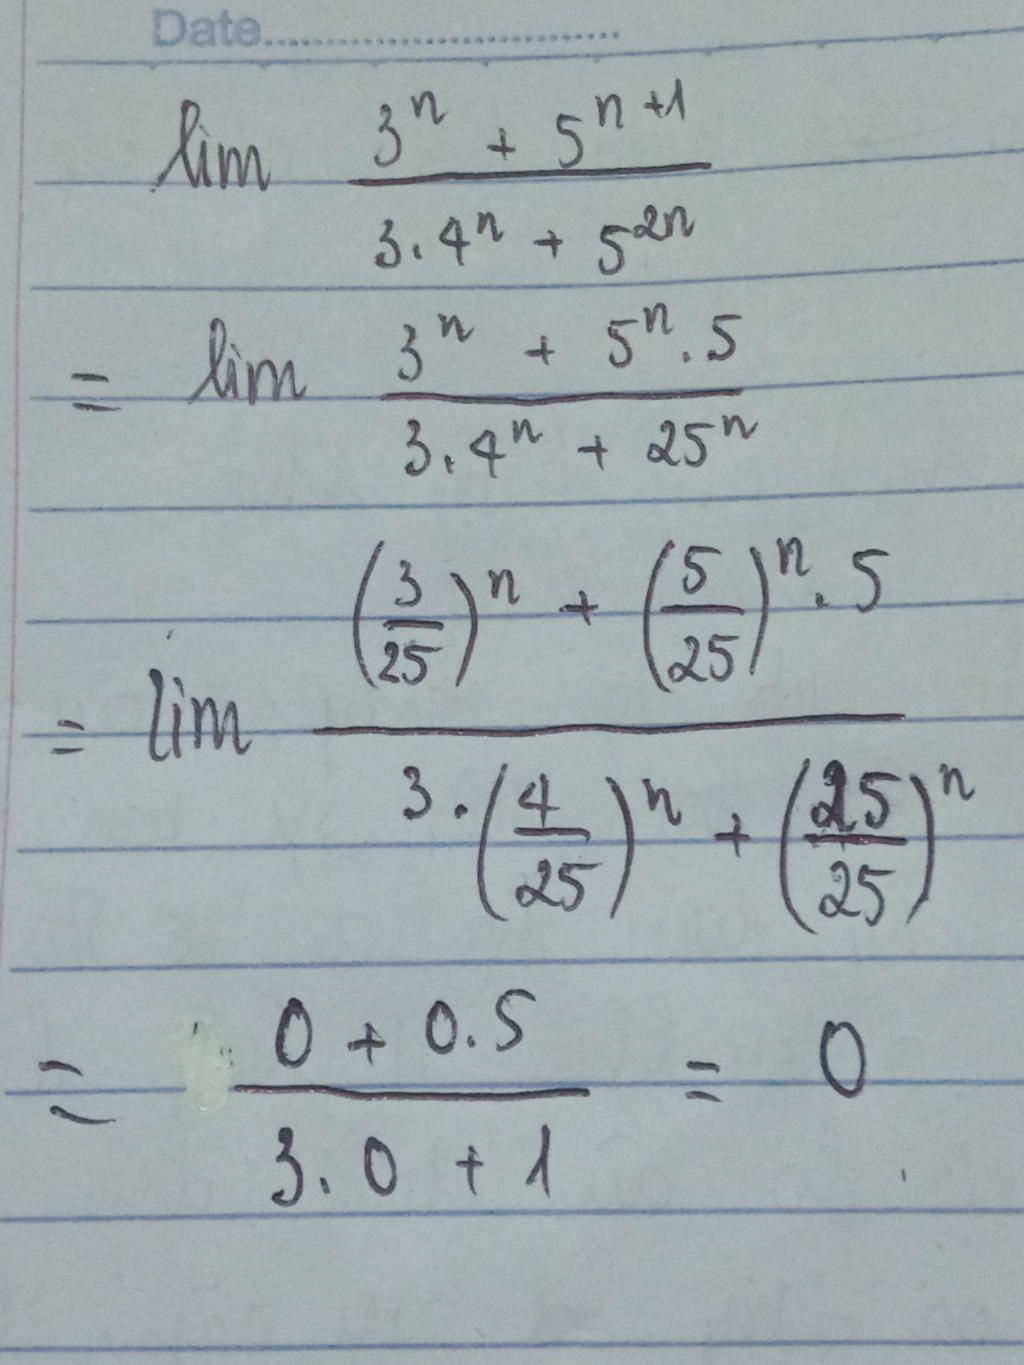 Date..............................
lim (3^n + 5^(n+1)) / (3.4^n + 5^(2n))
= lim (3^n + 5^n.5) / (3.4^n + 25^n)
= lim ((3/25)^n + (5/25)^n.5) / (3.(4/25)^n + (25/25)^n)
= (0 + 0.5) / (3.0 + 1) = 0